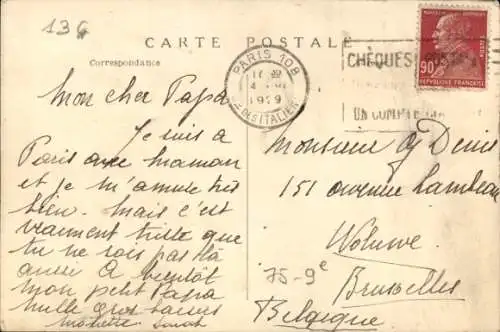 136
CARTE POSTALE
Correspondance
PARIS 108
1929
Bd DES ITALIENS
CHÈQUES POSTAUX
UN COMPTE
90
POSTES
REPUBLIQUE FRANÇAISE
Mon cher Papa
Je suis a
Paris avec maman
et je m'amuse très
bien. Mais c'est
vraiment triste que
tu ne sois pas là
aussi A bientôt
mon petit Papa
mille gros baisers
Monsieur G Denis
151 avenue Lambeau
Woluwe.
Bruxelles
Belgique
75-9e